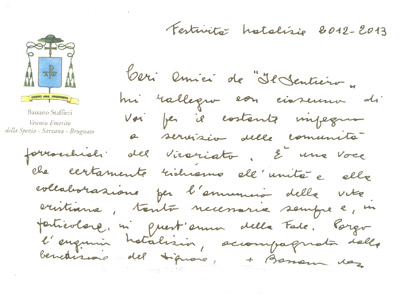 Festività natalizie 2012-2013
Cari amici de "Il Sentiero"
mi rallegro con ciascuno di
Voi per il costante impegno
a servizio delle comunità
parrocchiali del Vicariato. È una voce
che certamente richiama all'unità e alla
collaborazione per l'annuncio della vita
cristiana, tanto necessaria sempre e, in
particolare, in quest'anno della Fede. Porgo
l'augurio natalizio, accompagnato dalla
benedizione del Signore. + Bassano
Bassano Staffieri
Vescovo Emerito
della Spezia - Sarzana - Brugnato